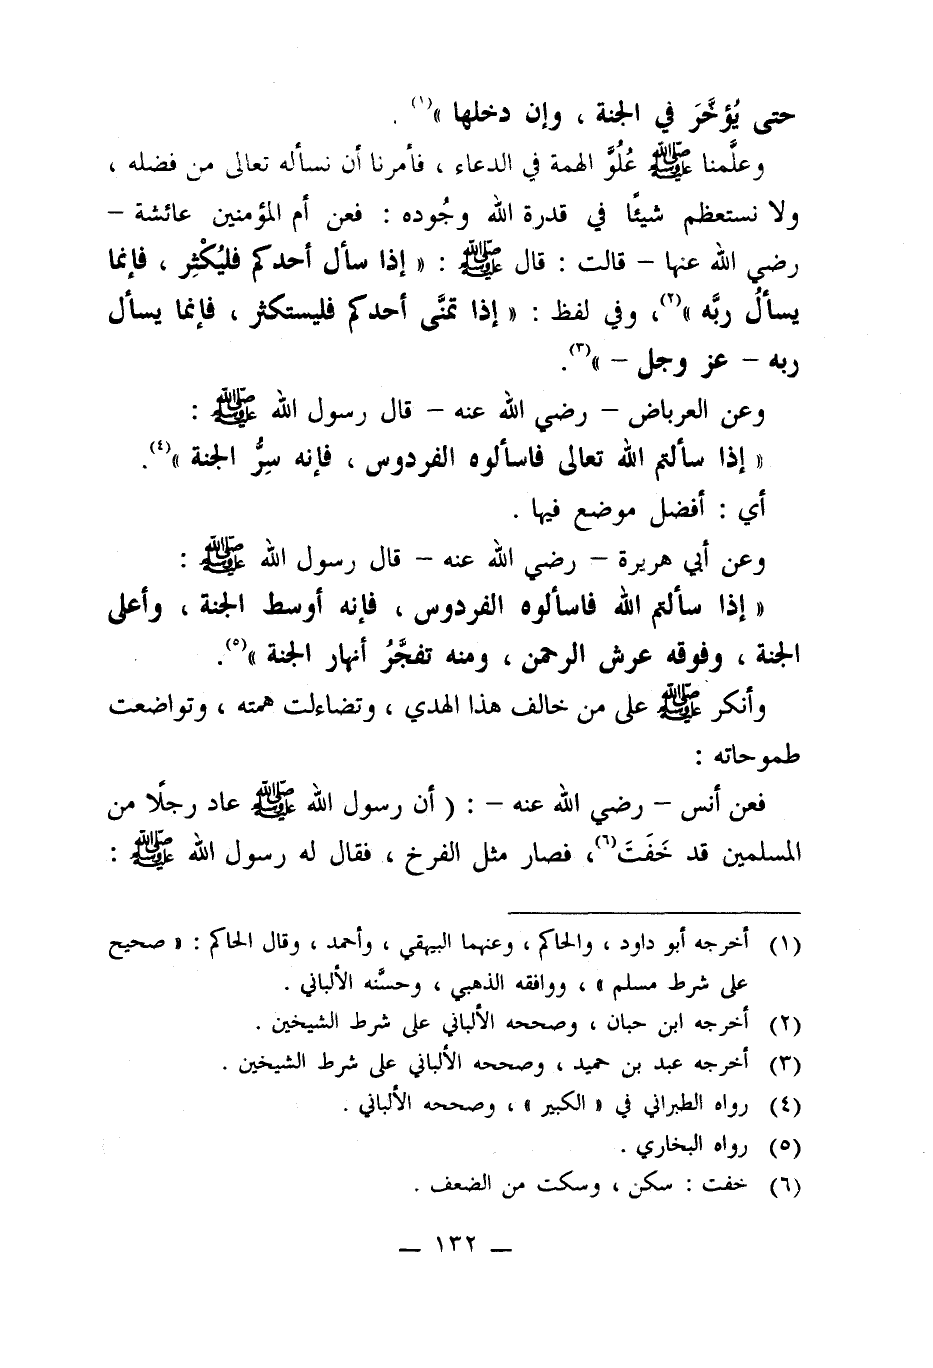 حتى يُؤخَّرَ في الجنة ، وإن دخلها »(١) .
وعلَّمنا ﷺ عُلُوَّ الهمة في الدعاء ، فأمرنا أن نسأله تعالى من فضله ،
ولا نستعظم شيئًا في قدرة الله وجُوده : فعن أم المؤمنين عائشة –
رضي الله عنها – قالت : قال ﷺ : « إذا سأل أحدكم فليُكْثِر ، فإنما
يسألُ ربَّه »(٢)، وفي لفظ : « إذا تمنَّى أحدكم فليستكثر ، فإنما يسأل
ربه – عز وجل – »(٣).
وعن العرباض – رضي الله عنه – قال رسول الله ﷺ :
« إذا سألتم الله تعالى فاسألوه الفردوس ، فإنه سِرُّ الجنة »(٤).
أي : أفضل موضع فيها .
وعن أبي هريرة – رضي الله عنه – قال رسول الله ﷺ :
« إذا سألتم الله فاسألوه الفردوس ، فإنه أوسط الجنة ، وأعلى
الجنة ، وفوقه عرش الرحمن ، ومنه تفجَّرُ أنهار الجنة »(٥).
وأنكر ﷺ على من خالف هذا الهدي ، وتضاءلت همته ، وتواضعت
طموحاته :
فعن أنس – رضي الله عنه – : ( أن رسول الله ﷺ عاد رجلًا من
المسلمين قد خَفَتَ(٦)، فصار مثل الفرخ ، فقال له رسول الله ﷺ :
(١) أخرجه أبو داود ، والحاكم ، وعنهما البيهقي ، وأحمد ، وقال الحاكم : « صحيح
على شرط مسلم » ، ووافقه الذهبي ، وحسَّنه الألباني .
(٢) أخرجه ابن حبان ، وصححه الألباني على شرط الشيخين .
(٣) أخرجه عبد بن حميد ، وصححه الألباني على شرط الشيخين .
(٤) رواه الطبراني في « الكبير » ، وصححه الألباني .
(٥) رواه البخاري .
(٦) خفت : سكن ، وسكت من الضعف .
– ١٣٢ –